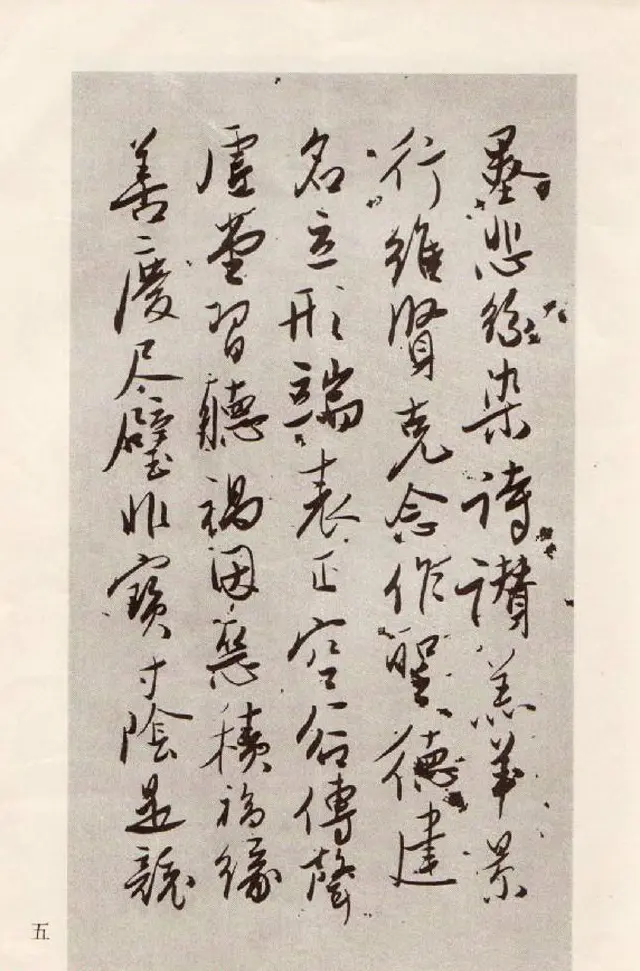 墨悲絲染詩讚羔羊景
行維賢克念作聖德建
名立形端表正空谷傳聲
虛堂習聽禍因惡積福緣
善慶尺璧非寶寸陰是競
五